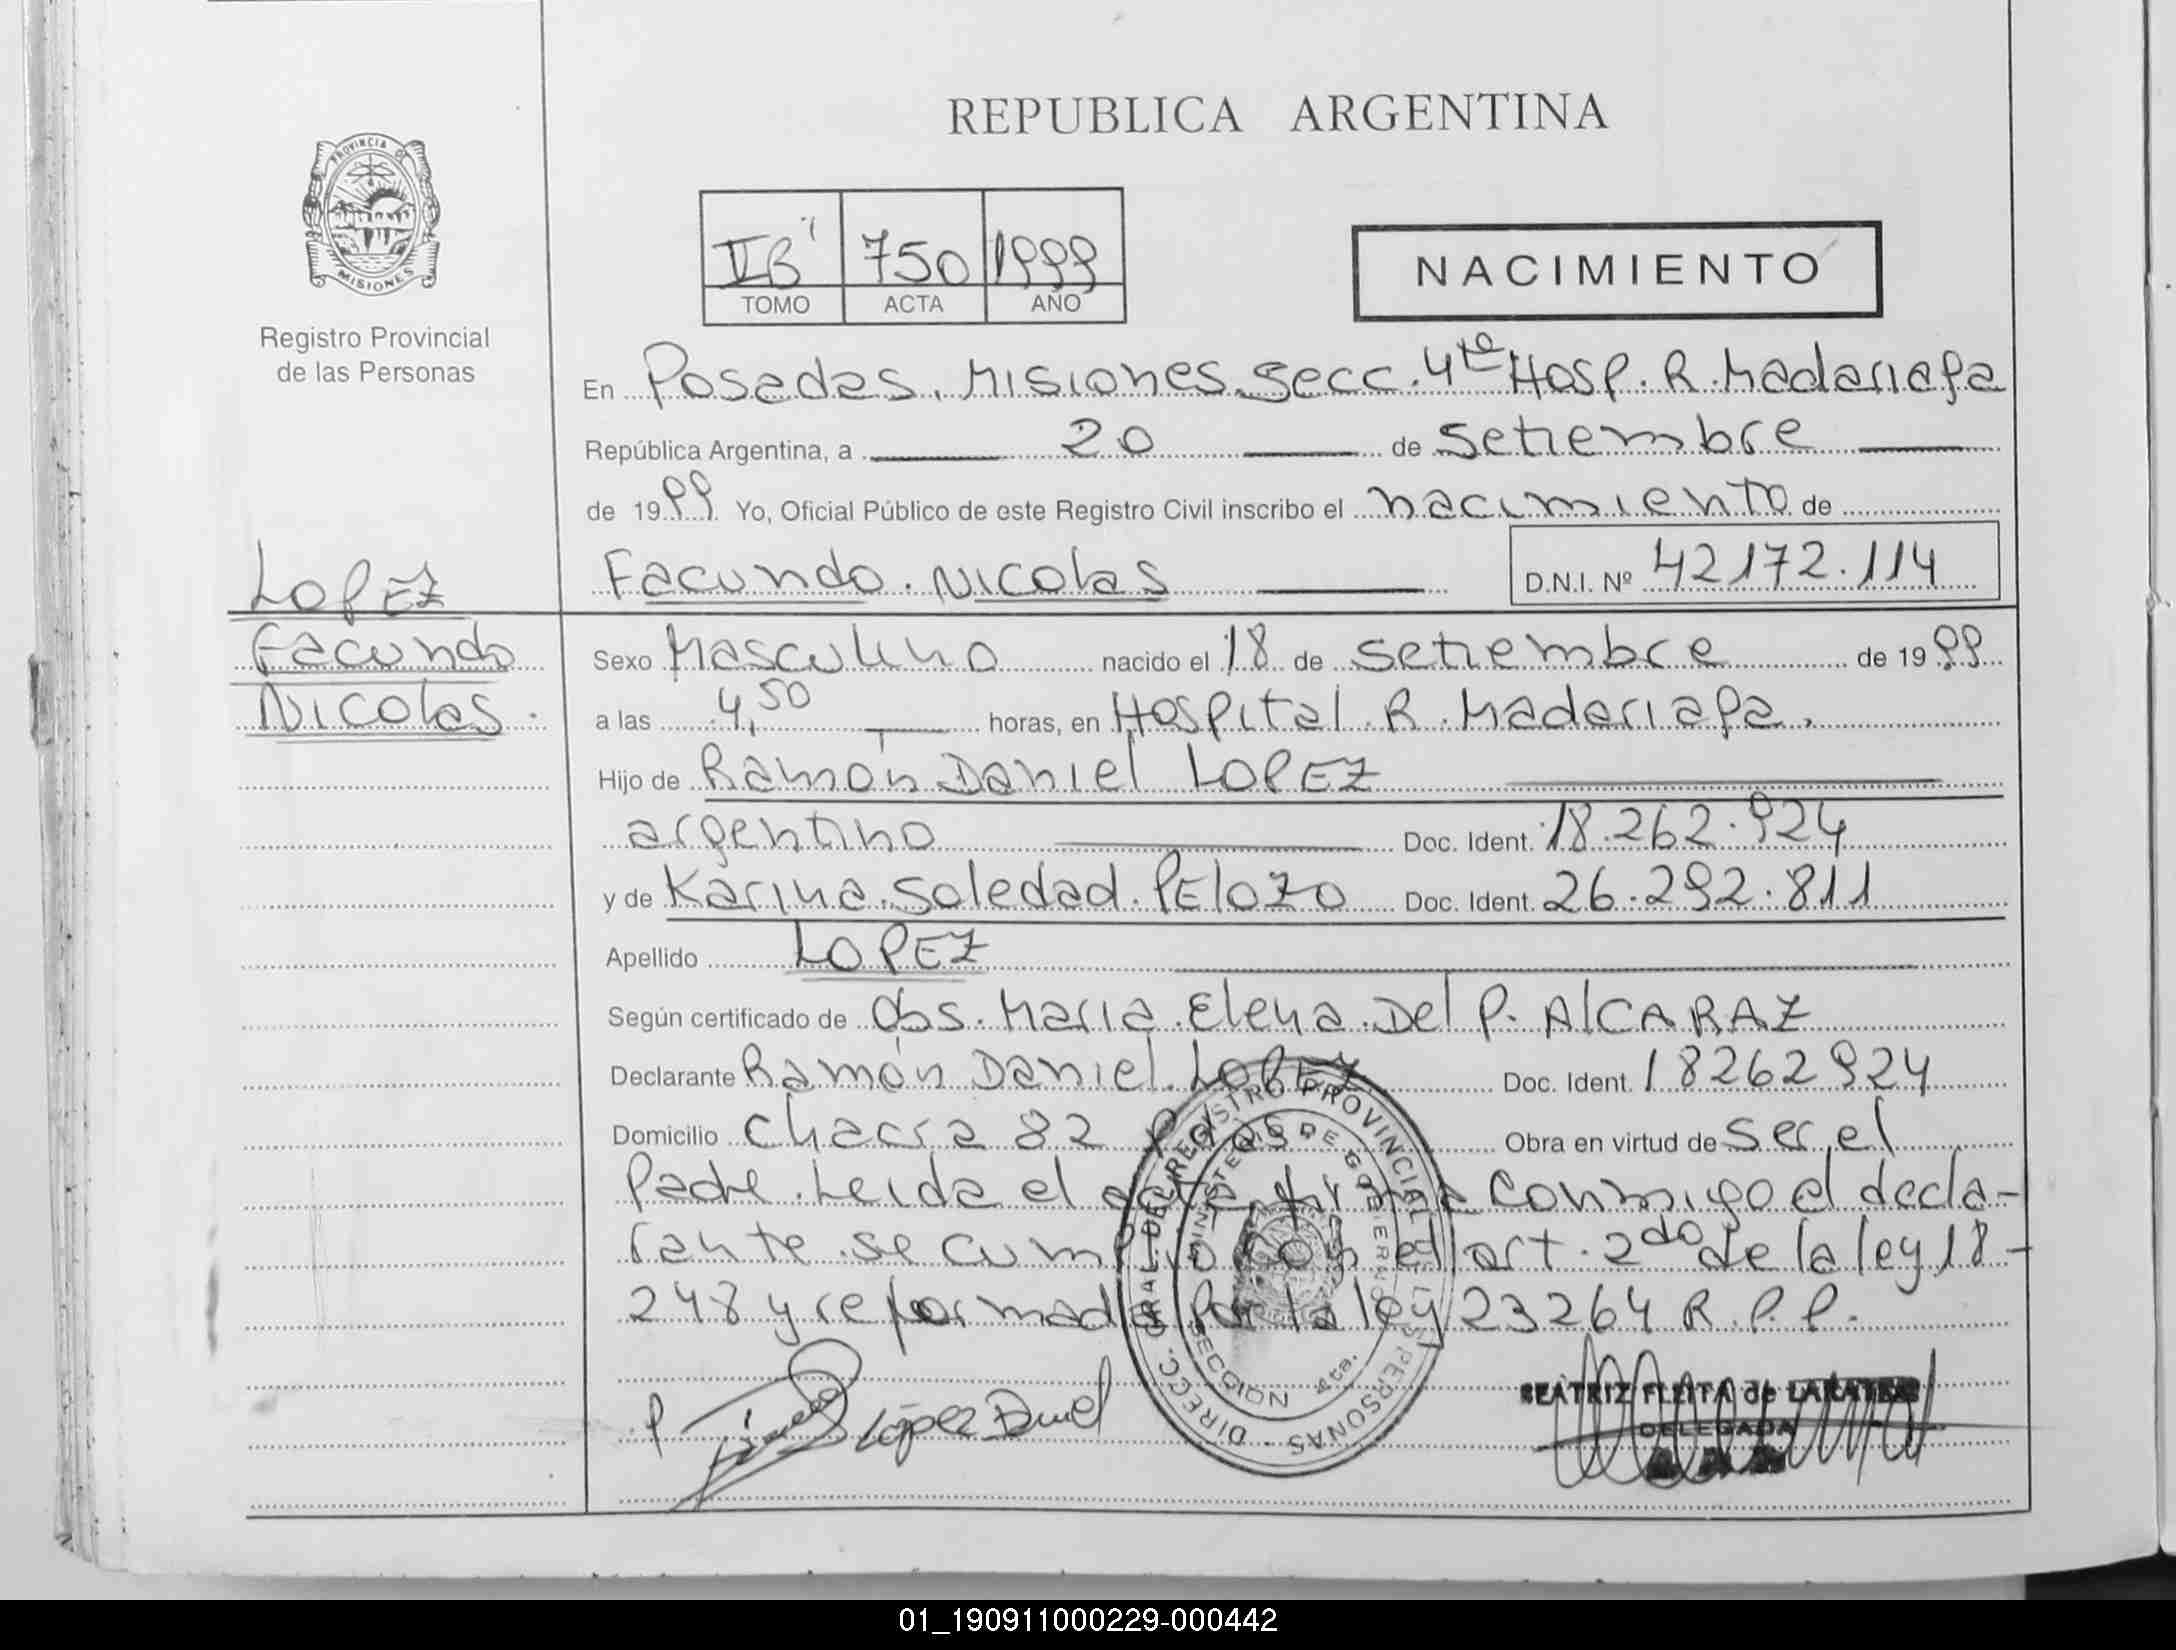 REPUBLICA ARGENTINA
PROVINCIA DE
MISIONES
Registro Provincial
de las Personas
750 1999
TOMO ACTA AÑO
NACIMIENTO
En Posadas, Misiones Secc. 4ta Hosp. R. Madariaga
República Argentina, a 20 de Setiembre
de 1999 Yo, Oficial Público de este Registro Civil inscribo el nacimiento de
Facundo Nicolas D.N.I. Nº 42172.114
LOPEZ
Facundo
Nicolas.
Sexo Masculino nacido el 18 de Setiembre de 1999
a las 4,50 horas, en Hospital R. Madariaga.
Hijo de Ramón Daniel LOPEZ
argentino Doc. Ident. 18.262.924
y de Karina Soledad PElOZO Doc. Ident. 26.292.811
Apellido LOPEZ
Según certificado de Obs. Maria Elena Del P. AlCARAZ
Declarante Ramón Daniel LOPEZ Doc. Ident. 18262924
Domicilio Chacra 82 Pdas Obra en virtud de ser el
Padre. Leida el acta firma conmigo el decla-
rante se cumplio con el art. 2do de la ley 18-
248 y reformada por la ley 23264 R.P.P.
López Daniel
DIRECC. GRAL. DEL REGISTRO PROVINCIAL DE LAS PERSONAS
MINISTERIO DE GOBIERNO
SECCION 4ta.
BEATRIZ FLEITA de
DELEGADA
01_190911000229-000442